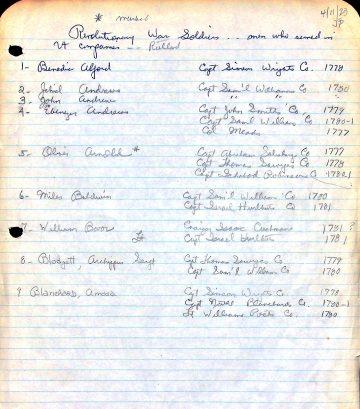 4/11/23
* marked JP
Revolutionary War Soldiers -- men who served in
Vt companies --
1- Benedic Alford Capt Simeon Wrights Co. 1778
2- Andrews Capt Sam'l Williams Co 1780
3- John Andrew " " "
4- Ebenezer Andrews Capt John Smith Co 1779
Capt Saml William Co 1780-1
Col Meads 1777
5- Oliver Arnold * Capt Abraham Salsbury Co 1777
Capt Thomas Sawyers Co 1778
Capt Robinsons Co
6- Miles Baldwin Capt Sam'l William Co 1780
Capt Israel Hurlbut Co 1781
7- William Capt Isaac 1781 ?
Lt Capt Israel Hurlbut 1781
8- Blodgett, Sergt Capt Thomas Sawyers Co 1779
Capt Sam'l William Co 1780
9 Blanchard, Amos Cpt Simeon Wrights Co 1778
Capt Blanchard Co. 1780-1
Lt Williams Co. 1780